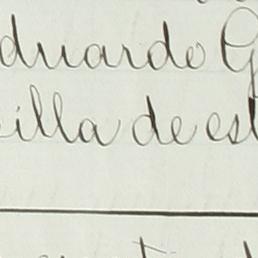 duardo G
illa de est